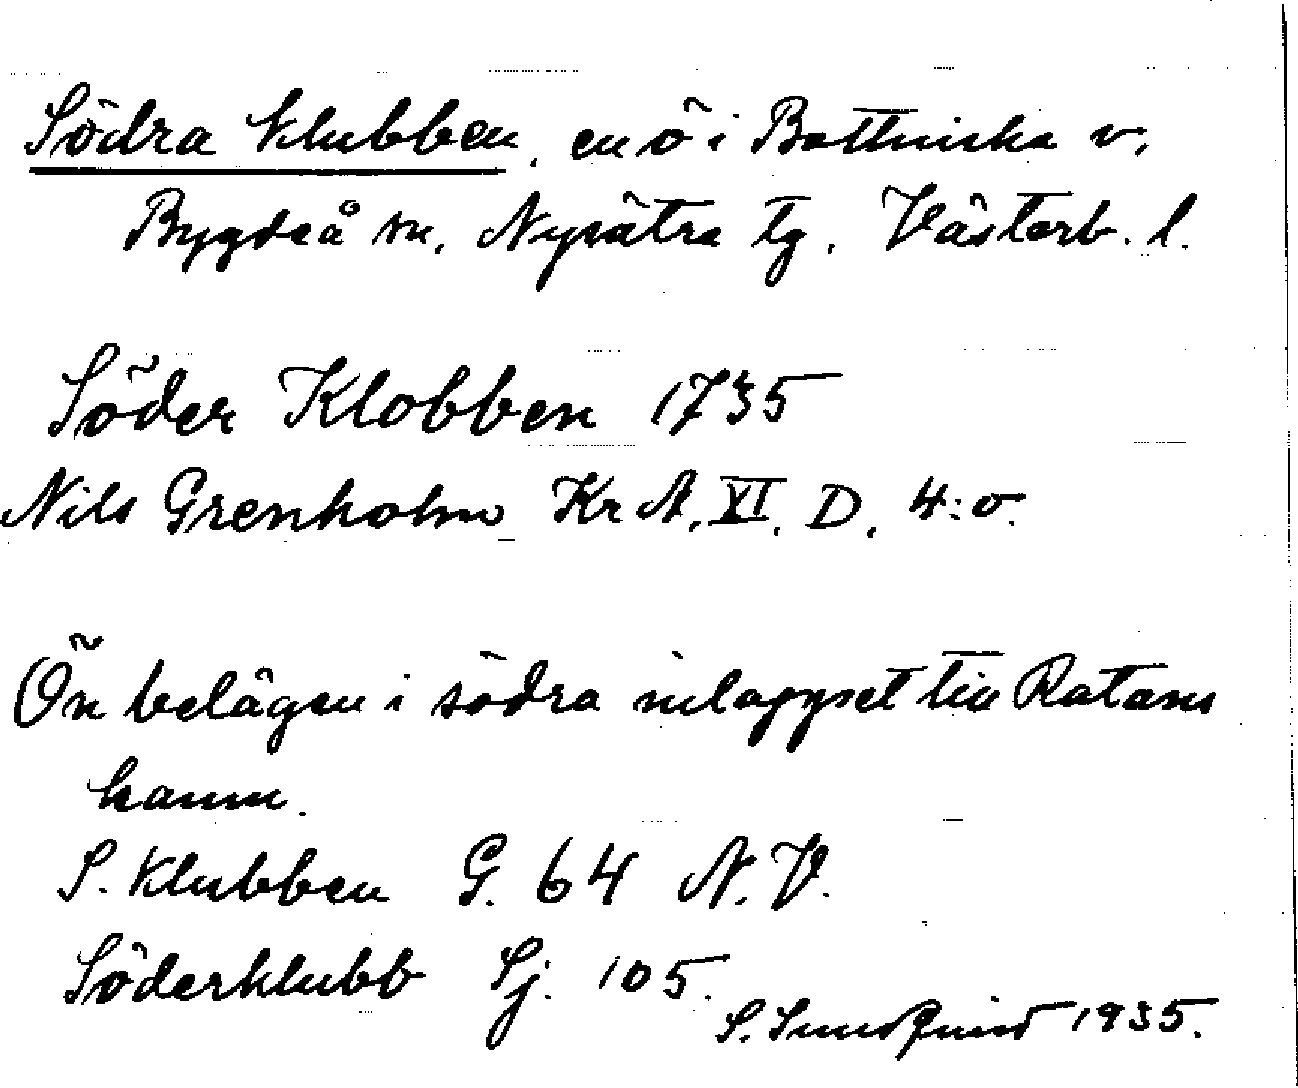 Södra Klubben, en ö i Bottniska v.
Bygdeå sn, Nysätra tg. Västerb. l.
Söder Klobben 1735
Nils Grenholm KrA. XI. D. 4:o.
Ön belägen i södra inloppet till Ratans
hamn.
S. Klubben G. 64 N.V.
Söderklubb Sj. 105.
S. Sundqvist 1935.